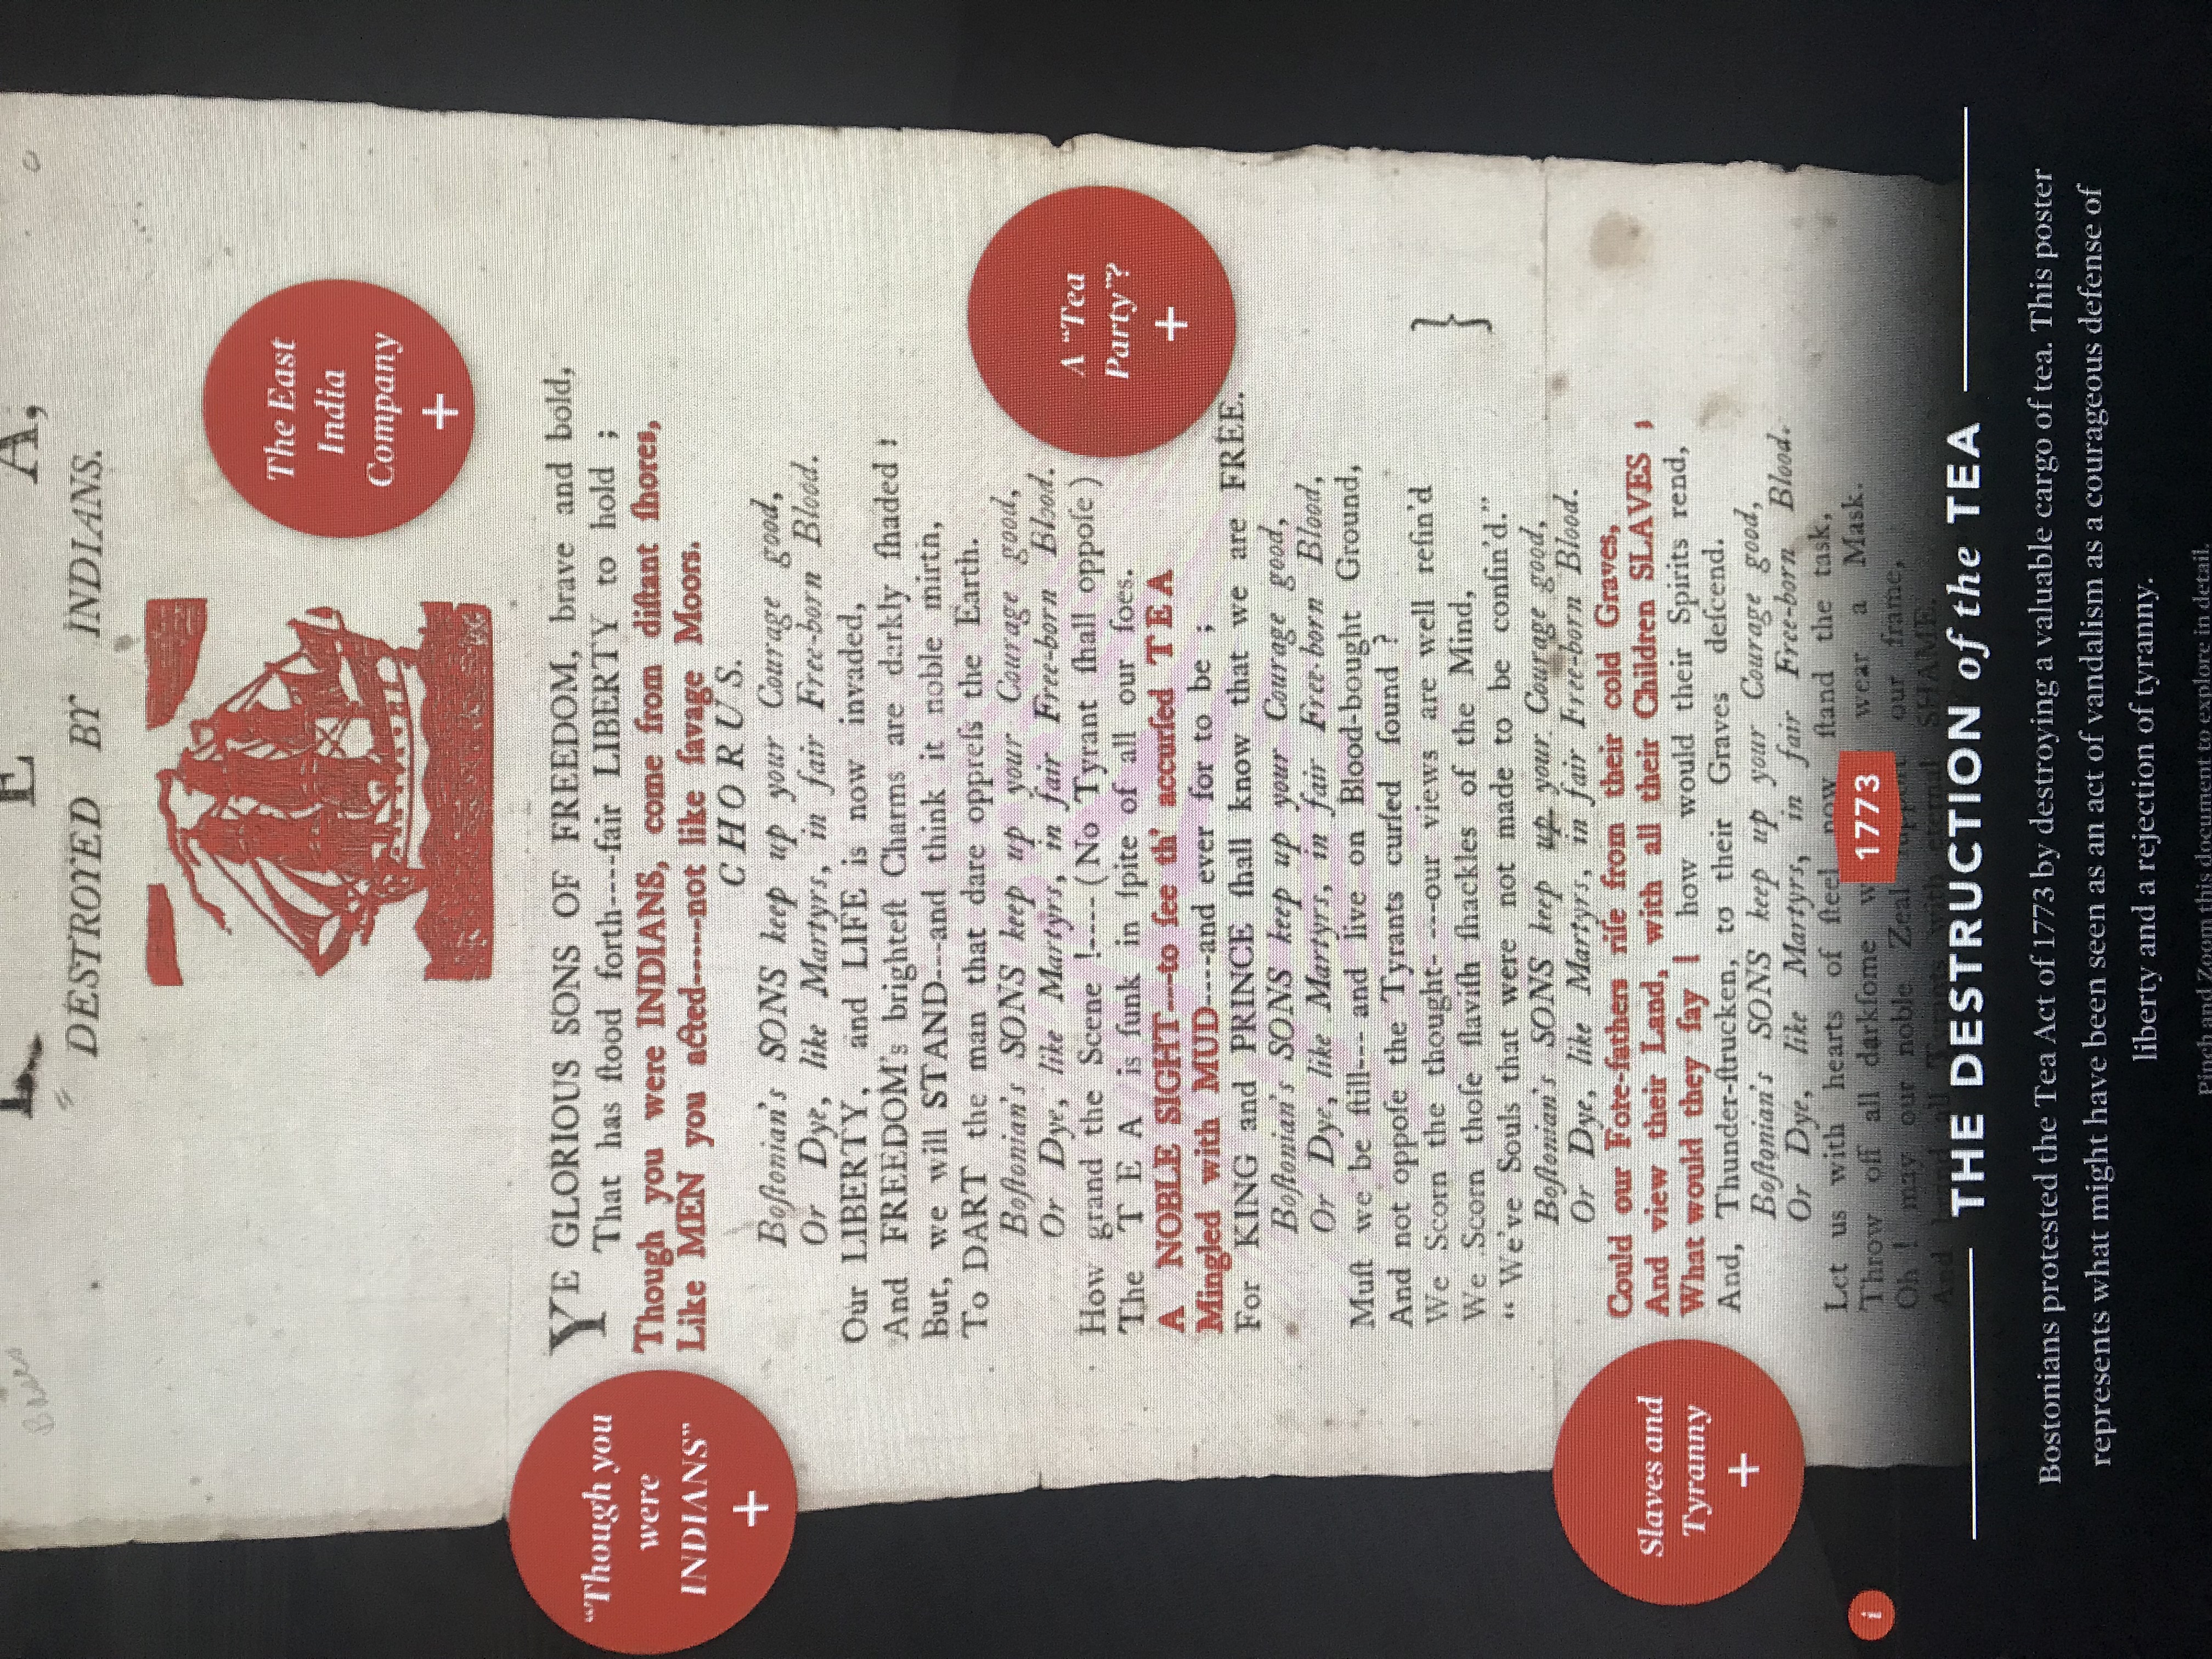 E A,
DESTROYED BY INDIANS.
The East
India
Company
+
YE GLORIOUS SONS OF FREEDOM, brave and bold,
That has ſtood forth----fair LIBERTY to hold ;
Though you were INDIANS, come from diſtant ſhores,
Like MEN you acted-----not like ſavage Moors.
"Though you
were
INDIANS"
+
CHORUS.
Boſtonian's SONS keep up your Courage good,
Or Dye, like Martyrs, in fair Free-born Blood.
Our LIBERTY, and LIFE is now invaded,
And FREEDOM's brighteſt Charms are darkly ſhaded !
But, we will STAND---and think it noble mirth,
To DART the man that dare oppreſs the Earth.
Boſtonian's SONS keep up your Courage good,
Or Dye, like Martyrs, in fair Free-born Blood.
How grand the Scene !---- ( No Tyrant ſhall oppoſe )
The T E A is ſunk in ſpite of all our foes.
A NOBLE SIGHT---to ſee th' accurſed T E A
Mingled with MUD----and ever for to be ;
For KING and PRINCE ſhall know that we are FREE.
A "Tea
Party"?
+
Boſtonian's SONS keep up your Courage good,
Or Dye, like Martyrs, in fair Free-born Blood,
Muſt we be ſtill--- and live on Blood-bought Ground,
And not oppoſe the Tyrants curſed found ?
We Scorn the thought- ---our views are well refin'd
We Scorn thoſe ſlaviſh ſhackles of the Mind,
"We've Souls that were not made to be confin'd."
}
Boſtonian's SONS keep up your Courage good,
Or Dye, like Martyrs, in fair Free-born Blood.
Could our Fore-fathers riſe from their cold Graves,
And view their Land, with all their Children SLAVES ;
What would they ſay ! how would their Spirits rend,
And, Thunder-ſtrucken, to their Graves deſcend.
Slaves and
Tyranny
+
Boſtonian's SONS keep up your Courage good,
Or Dye, like Martyrs, in fair Free-born Blood.
Let us with hearts of ſteel now ſtand the task,
Throw off all darkſome wear a Mask.
Oh ! may our noble Zeal ſupport our frame,
And brand all Tyrants with eternal SHAME.
1773
i
THE DESTRUCTION of the TEA
Bostonians protested the Tea Act of 1773 by destroying a valuable cargo of tea. This poster
represents what might have been seen as an act of vandalism as a courageous defense of
liberty and a rejection of tyranny.
Pinch and Zoom this document to explore in detail.